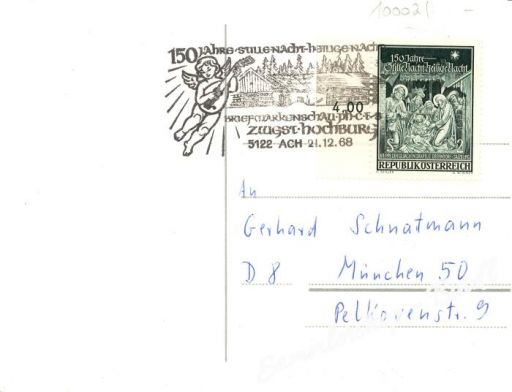 10002/ -
150 JAHRE · STILLE NACHT · HEILIGE NACHT
BRIEFMARKENSCHAU · PH·C·T·S
ZWGST · HOCHBURG
5122 ACH 21.12.68
4.00
150 Jahre
Stille Nacht, Heilige Nacht
REPUBLIK ÖSTERREICH
An
Gerhard Schnatmann
D 8 München 50
Pelkovenstr. 9